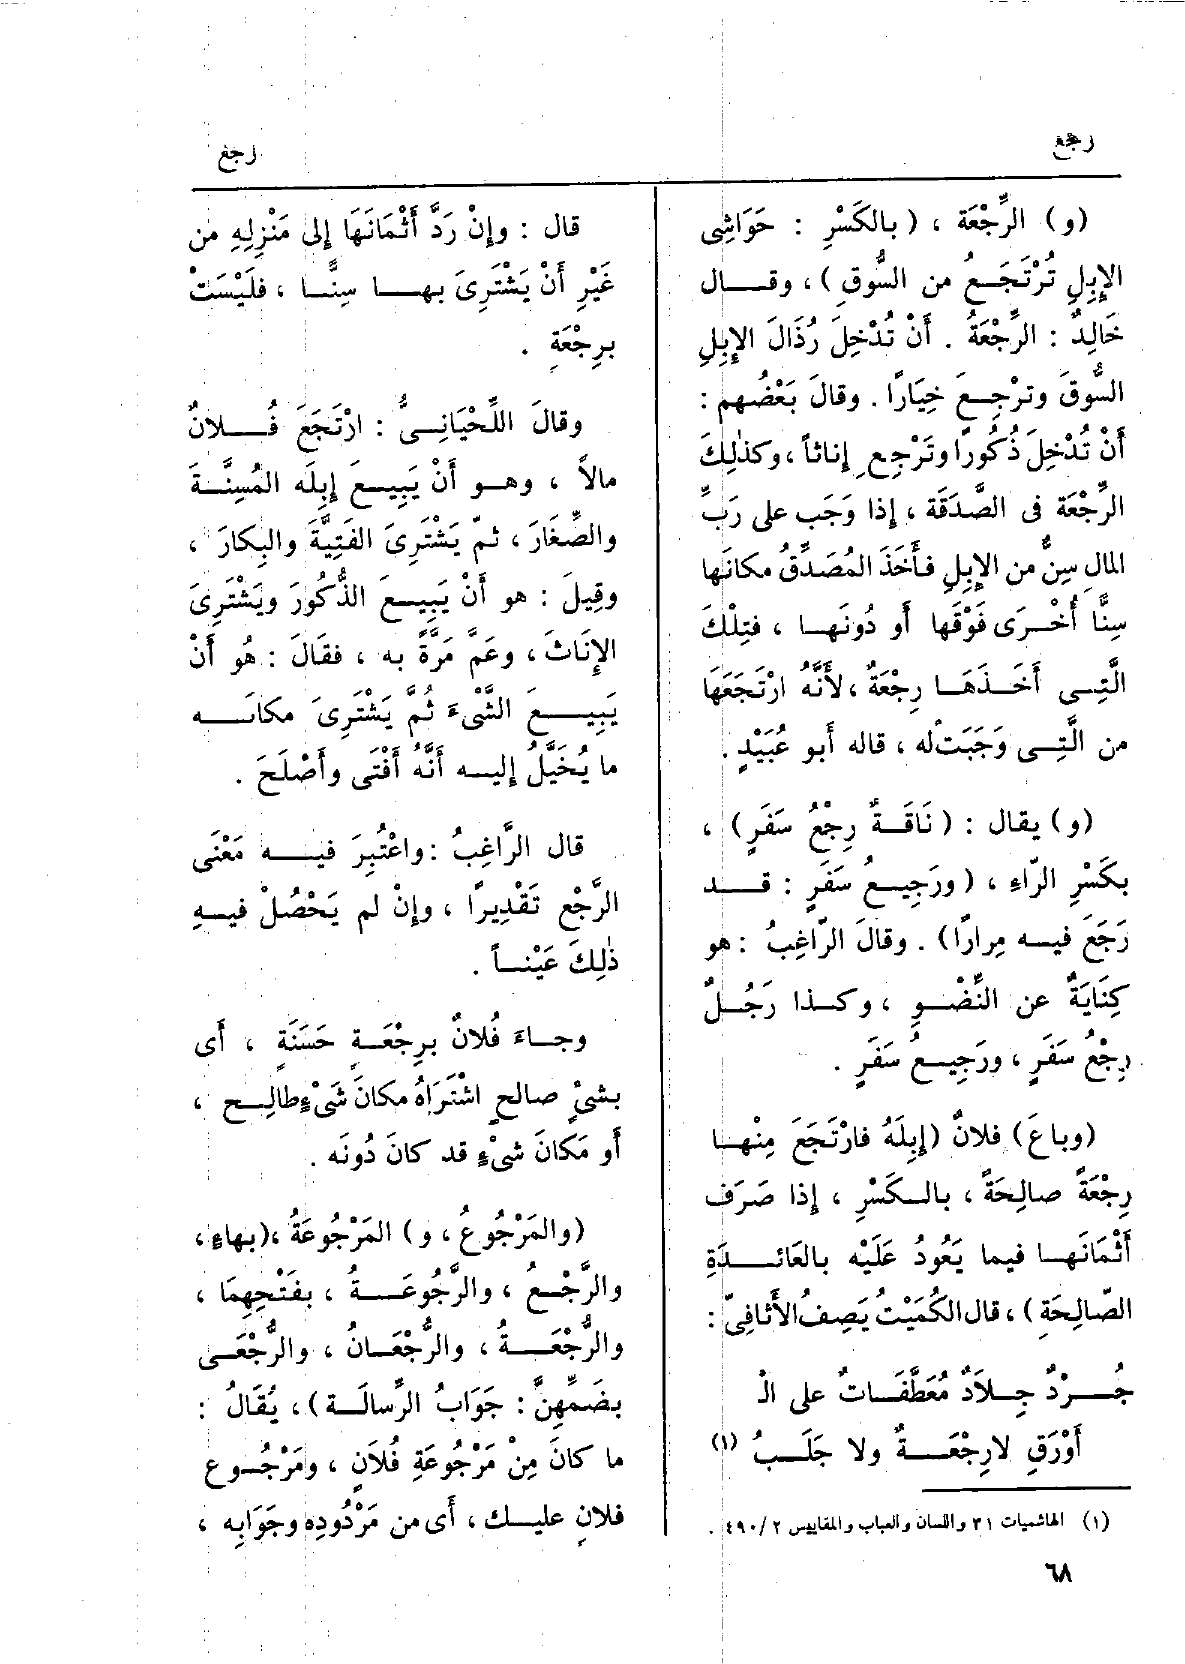 رجع
رجع
(و) الرِّجْعَة ، (بالكَسْرِ : حَوَاشِى
الإِبِلِ تُرْتَجَعُ من السُّوقِ) ، وقال
خَالِدٌ : الرِّجْعَةُ . أَنْ تُدْخِلَ رُذَالَ الإِبِلِ
السُّوقَ وترْجِعَ خِيَارًا . وقالَ بَعْضُهم :
أَنْ تُدْخِلَ ذُكُورًا وتَرْجِعِ إِناثاً ، وكذٰلِكَ
الرِّجْعَة فى الصَّدَقَة ، إِذا وَجَب على رَبِّ
المالِ سِنٌّ من الإِبِلِ فأَخَذَ المُصَدِّقُ مكانَها
سِنًّا أُخْرَى فَوْقَها أَو دُونَها ، فتِلْكَ
الَّتِى أَخَذَهَا رِجْعَةٌ ، لأَنَّهُ ارْتَجَعَهَا
من الَّتِى وَجَبَتْ له ، قاله أَبو عُبَيْدٍ .
(و) يقال : (نَاقَةٌ رِجْعُ سَفَرٍ) ،
بكَسْرِ الرّاءِ ، (ورَجِيعُ سَفَرٍ : قد
رَجَعَ فيه مِرارًا) . وقالَ الرّاغِبُ : هو
كِنَايَةٌ عن النِّضْوِ ، وكذا رَجُلٌ
رِجْعُ سَفَرٍ ، ورَجِيعُ سَفَرٍ .
(وباعَ) فلانٌ (إِبِلَهُ فارْتَجَعَ مِنْها
رِجْعَةً صالِحَةً ، بالكَسْرِ ، إِذا صَرَفَ
أَثْمَانَها فيما يَعُودُ عَلَيْه بالعَائدَةِ
الصّالِحَةِ) ، قال الكُمَيْتُ يَصِفُ الأَثافِىّ :
جُرْدٌ جِلَادٌ مُعَطَّفَاتٌ على الْ
أَوْرَقِ لا رِجْعَةٌ ولا جَلَبُ (١)
(١) الهاشميات ٣١ واللسان والعباب والمقاييس ٢ /٤٩٠ .
٦٨
قال : وإِنْ رَدَّ أَثْمَانَهَا إِلى مَنْزِلِهِ من
غَيْرِ أَنْ يَشْتَرِىَ بها سِنًّا ، فلَيْسَتْ
برِجْعَةٍ .
وقالَ اللِّحْيَانِىُّ : ارْتَجَعَ فُلانٌ
مالاً ، وهو أَنْ يَبِيعَ إِبِلَه المُسِنَّةَ
والصِّغَارَ ، ثمّ يَشْتَرِىَ الفَتِيَّةَ والبِكارَ ،
وقِيلَ : هو أَنْ يَبِيعَ الذُّكُورَ ويَشْتَرِىَ
الإِنَاثَ ، وعَمَّ مَرَّةً به ، فقالَ : هُو أَنْ
يَبِيعَ الشَّىْءَ ثُمَّ يَشْتَرِىَ مكانَه
ما يُخَيَّلُ إِليه أَنَّهُ أَفْتَى وأَصْلَحَ .
قال الرَّاغِبُ : واعْتُبِرَ فيه مَعْنَى
الرَّجْعِ تَقْدِيرًا ، وإِنْ لم يَحْصُلْ فيهِ
ذٰلِكَ عَيْناً .
وجاءَ فُلانٌ برِجْعَةٍ حَسَنَةٍ ، أَى
بشىْءٍ صالحٍ اشْتَرَاهُ مكانَ شَىْءٍ طالِحٍ ،
أَو مَكانَ شىْءٍ قد كانَ دُونَه .
(والمَرْجُوعُ ، و) المَرْجُوعَةُ ، (بهاءٍ ،
والرَّجْعُ ، والرَّجُوعَةُ ، بفَتْحِهِمَا ،
والرُّجْعَةُ ، والرُّجْعَانُ ، والرُّجْعَى
بضَمِّهِنَّ : جَوَابُ الرِّسالَة) ، يُقَالُ :
ما كانَ مِنْ مَرْجُوعَةِ فُلَانٍ ، ومَرْجُوعِ
فلانٍ عليك ، أَى من مَرْدُودِه وجَوَابِه ،